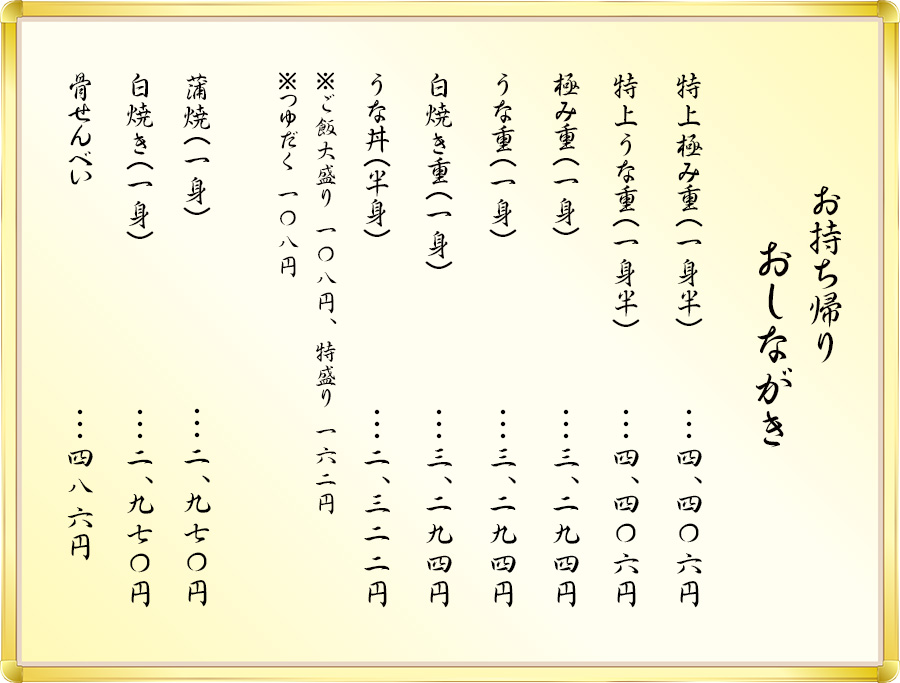 お持ち帰り
おしながき
特上極み重(一身半) …四、四〇六円
特上うな重(一身半) …四、四〇六円
極み重(一身) …三、二九四円
うな重(一身) …三、二九四円
白焼き重(一身) …三、二九四円
うな丼(半身) …二、三二二円
※ご飯大盛り 一〇八円、特盛り 一六二円
※つゆだく 一〇八円
蒲焼(一身) …二、九七〇円
白焼き(一身) …二、九七〇円
骨せんべい …四八六円